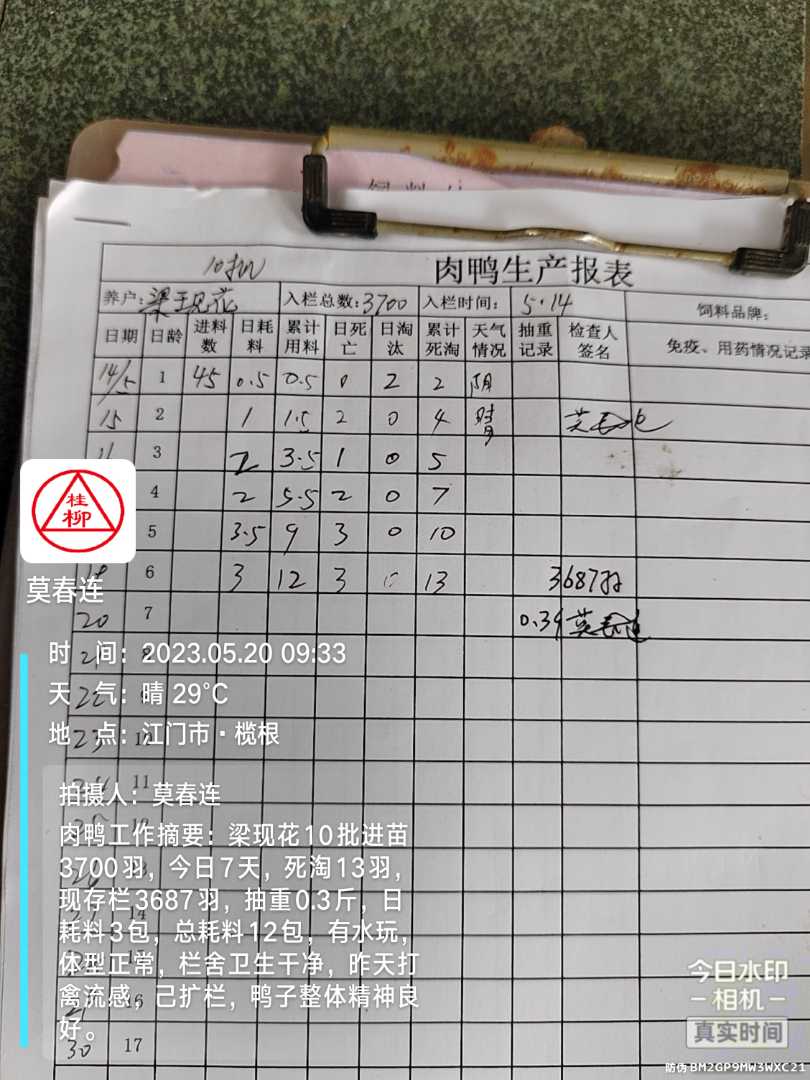 10批
肉鸭生产报表
养户:梁现花 入栏总数:3700 入栏时间: 5.14 饲料品牌:
日期 日龄 进料数 日耗料 累计用料 日死亡 日淘汰 累计死淘 天气情况 抽重记录 检查人签名 免疫、用药情况记录
14/5 1 45 0.5 0.5 0 2 2 阴
15 2 1 1.5 2 0 4 晴 莫春连
3 2 3.5 1 0 5
4 2 5.5 2 0 7
5 3.5 9 3 0 10
6 3 12 3 0 13 3687羽
20 7 0.39 莫春连
桂柳
莫春连
时 间: 2023.05.20 09:33
天 气: 晴 29℃
地 点: 江门市·榄根
23
11
14
16
30 17
拍摄人: 莫春连
肉鸭工作摘要: 梁现花10批进苗
3700羽, 今日7天, 死淘13羽,
现存栏3687羽, 抽重0.3斤, 日
耗料3包, 总耗料12包, 有水玩,
体型正常, 栏舍卫生干净, 昨天打
禽流感, 己扩栏, 鸭子整体精神良
好。
今日水印
-相机-
真实时间
防伪 BM2GP9MW3WXC21